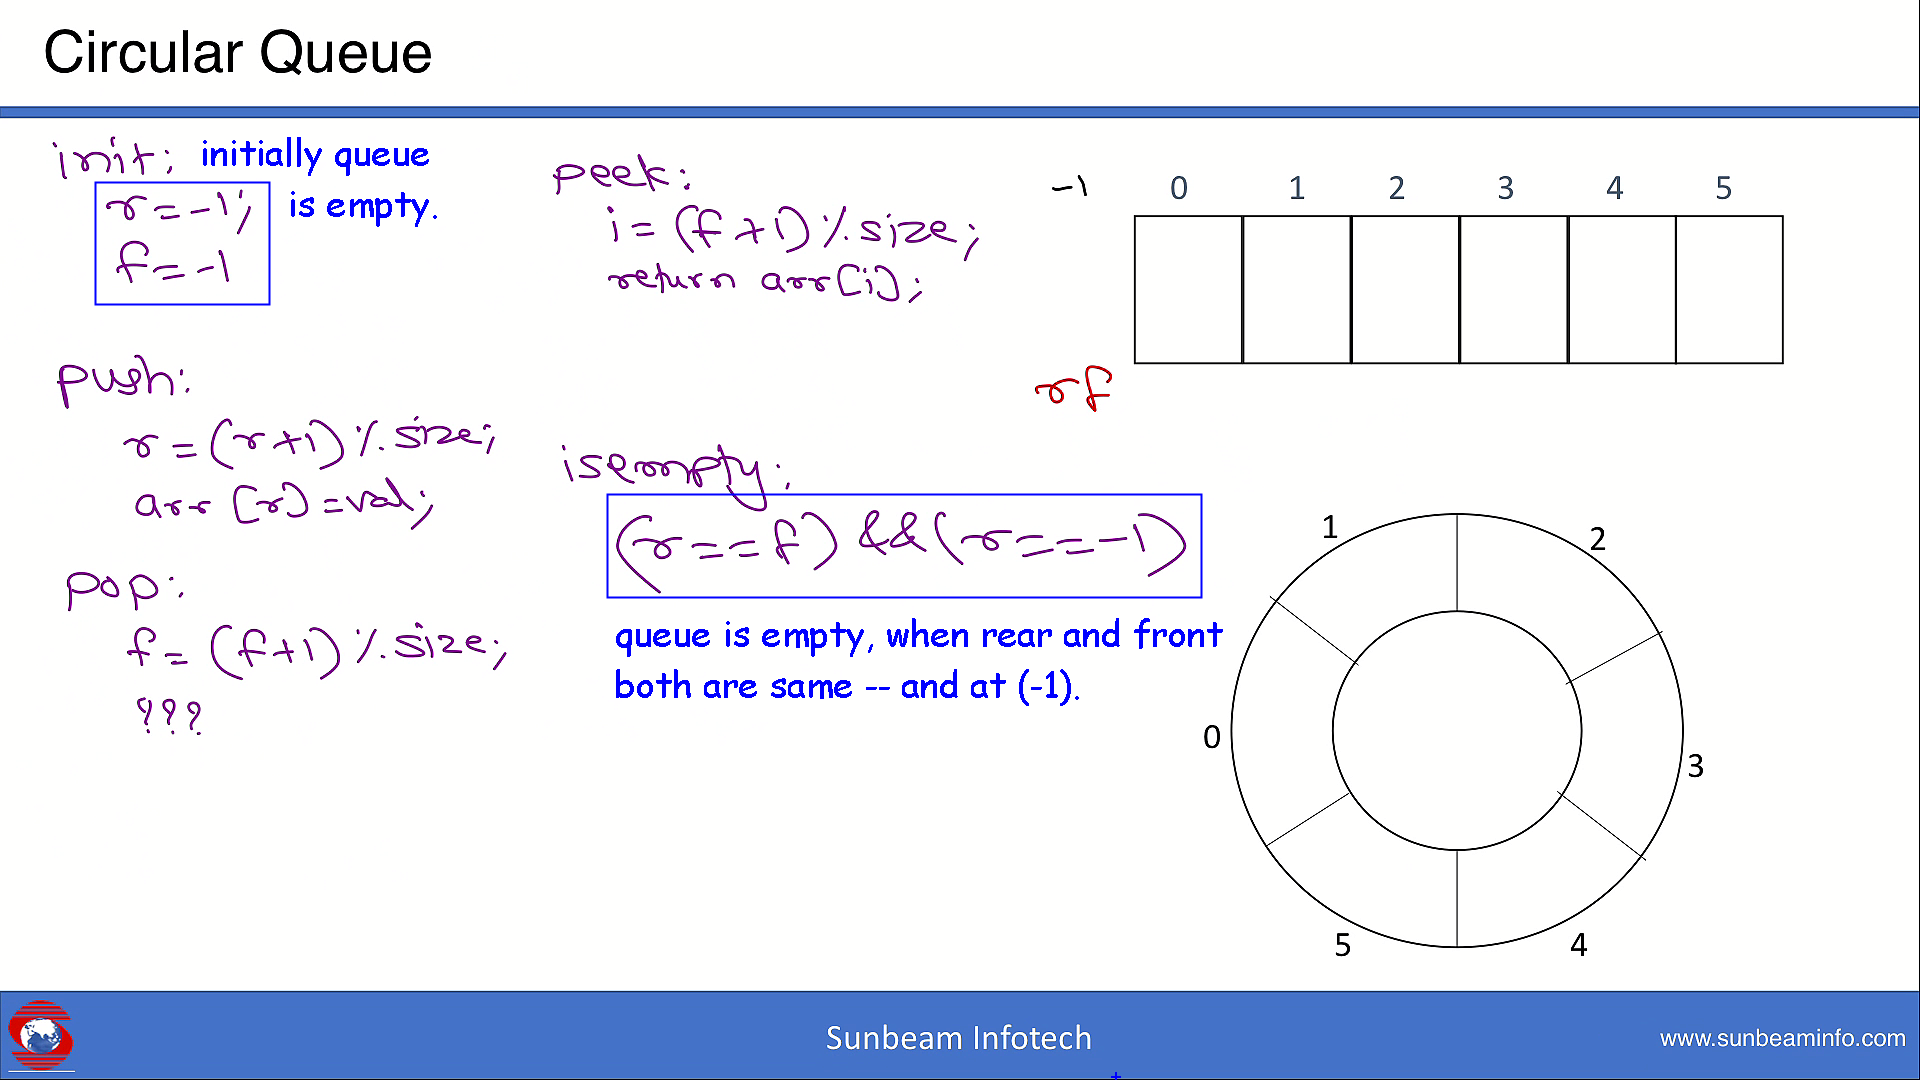 Circular Queue
init: initially queue
is empty.
r = -1;
f = -1
push:
r = (r+1) % size;
arr [r] = val;
pop:
f = (f+1) % size;
???
peek:
i = (f+1) % size;
return arr[i];
isempty:
(r == f) && (r == -1)
queue is empty, when rear and front
both are same -- and at (-1).
-1 0 1 2 3 4 5
r f
1 2
0 3
5 4
Sunbeam Infotech
www.sunbeaminfo.com